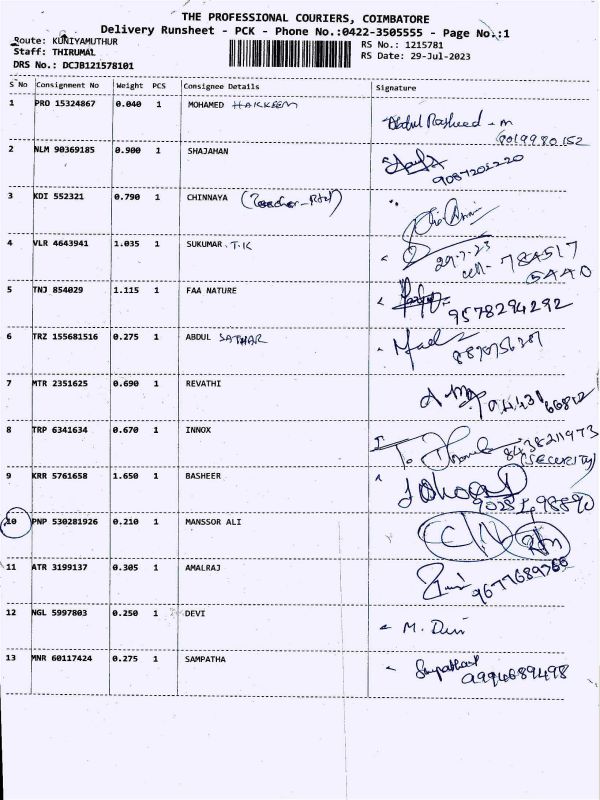 THE PROFESSIONAL COURIERS, COIMBATORE
Delivery Runsheet - PCK - Phone No.:0422-3505555 - Page No.:1
Route: KUNIYAMUTHUR
Staff: THIRUMAL
DRS No.: DCJB121578101
RS No.: 1215781
RS Date: 29-Jul-2023
S No Consignment No Weight PCS Consignee Details Signature
1 PRO 15324867 0.040 1 MOHAMED HAKKEEM
Abdul Rasheed - m
9019980152
2 NLM 90369185 0.900 1 SHAJAHAN
9087202220
3 KDI 552321 0.790 1 CHINNAYA
4 VLR 4643941 1.035 1 SUKUMAR. T.K
29-7-23
cell- 784517
5 TNJ 854029 1.115 1 FAA NATURE
9578294292
6 TRZ 155681516 0.275 1 ABDUL SATHAR
7 MTR 2351625 0.690 1 REVATHI
8 TRP 6341634 0.670 1 INNOX
8438211973
(SECURITY)
9 KRR 5761658 1.650 1 BASHEER
10 PNP 530281926 0.210 1 MANSSOR ALI
11 ATR 3199137 0.305 1 AMALRAJ
12 NGL 5997803 0.250 1 DEVI
M. Devi
13 MNR 60117424 0.275 1 SAMPATHA
9994689498